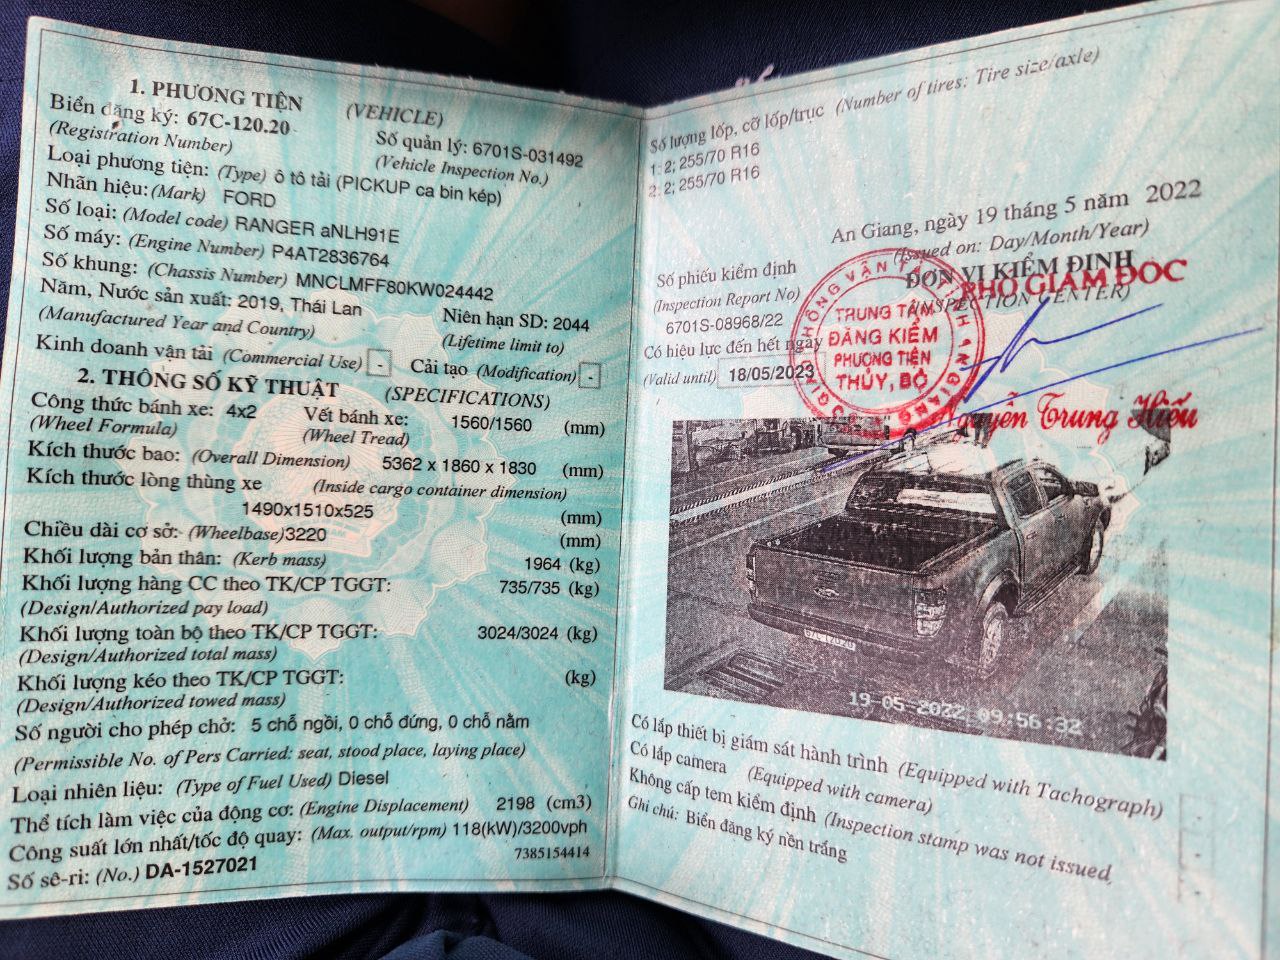 1. PHƯƠNG TIỆN (VEHICLE)
Biển đăng ký: 67C-120.20
(Registration Number)
Số quản lý: 6701S-031492
(Vehicle Inspection No.)
Loại phương tiện: (Type) ô tô tải (PICKUP ca bin kép)
Nhãn hiệu: (Mark) FORD
Số loại: (Model code) RANGER aNLH91E
Số máy: (Engine Number) P4AT2836764
Số khung: (Chassis Number) MNCLMFF80KW024442
Năm, Nước sản xuất: 2019, Thái Lan
(Manufactured Year and Country)
Niên hạn SD: 2044
(Lifetime limit to)
Kinh doanh vận tải (Commercial Use) - Cải tạo (Modification) -
2. THÔNG SỐ KỸ THUẬT (SPECIFICATIONS)
Công thức bánh xe: 4x2 Vết bánh xe: 1560/1560 (mm)
(Wheel Formula) (Wheel Tread)
Kích thước bao: (Overall Dimension) 5362 x 1860 x 1830 (mm)
Kích thước lòng thùng xe (Inside cargo container dimension)
1490x1510x525 (mm)
Chiều dài cơ sở: (Wheelbase) 3220 (mm)
Khối lượng bản thân: (Kerb mass) 1964 (kg)
Khối lượng hàng CC theo TK/CP TGGT: 735/735 (kg)
(Design/Authorized pay load)
Khối lượng toàn bộ theo TK/CP TGGT: 3024/3024 (kg)
(Design/Authorized total mass)
Khối lượng kéo theo TK/CP TGGT: (kg)
(Design/Authorized towed mass)
Số người cho phép chở: 5 chỗ ngồi, 0 chỗ đứng, 0 chỗ nằm
(Permissible No. of Pers Carried: seat, stood place, laying place)
Loại nhiên liệu: (Type of Fuel Used) Diesel
Thể tích làm việc của động cơ: (Engine Displacement) 2198 (cm3)
Công suất lớn nhất/tốc độ quay: (Max. output/rpm) 118(kW)/3200vph
7385154414
Số sê-ri: (No.) DA-1527021
Số lượng lốp, cỡ lốp/trục (Number of tires: Tire size/axle)
1: 2; 255/70 R16
2: 2; 255/70 R16
An Giang, ngày 19 tháng 5 năm 2022
(Issued on: Day/Month/Year)
Số phiếu kiểm định
(Inspection Report No)
6701S-08968/22
ĐƠN VỊ KIỂM ĐỊNH
PHÓ GIÁM ĐỐC
(INSPECTION CENTER)
Có hiệu lực đến hết ngày
(Valid until) 18/05/2023
TRUNG TÂM
ĐĂNG KIỂM
PHƯƠNG TIỆN
THỦY, BỘ
Nguyễn Trung Hiếu
67C-120.20
19-05-2022 09:56:32
Có lắp thiết bị giám sát hành trình (Equipped with Tachograph)
Có lắp camera (Equipped with camera)
Không cấp tem kiểm định (Inspection stamp was not issued)
Ghi chú: Biển đăng ký nền trắng